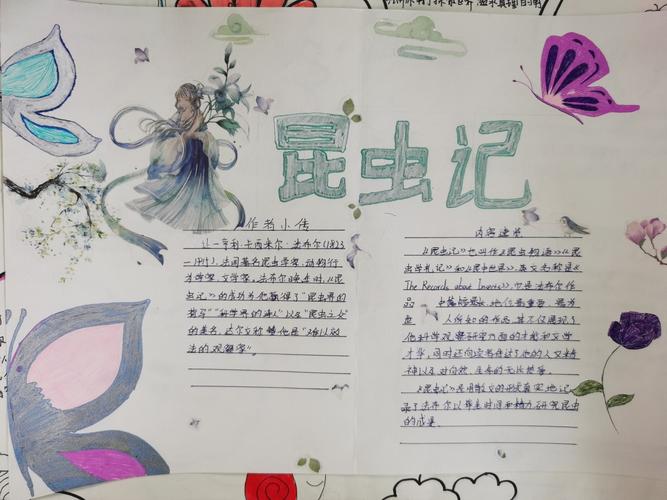 昆虫记
作者小传
让-亨利·卡西米尔·法布尔(1823
-1915),法国著名昆虫学家、动物行
为学家、文学家。法布尔晚年时,《昆
虫记》的成功为他赢得了“昆虫界的
荷马”“科学界的诗人”以及“昆虫之父”
的美名,达尔文称赞他是“难以效
法的观察家”
内容速览
《昆虫记》也叫作《昆虫物语》《昆
虫学札记》和《昆虫世界》,英文名称是《
The Records about Insects》,它是法布尔作
品 中篇幅最长、地位最重要、最为
人所知的作品,其不仅展现了
他科学观察研究方面的才能和文学
才华,同时还向读者传达了他的人文精
神以及对自然、生命的无比热爱。
《昆虫记》是用散文的形式真实地记
录了法布尔以毕生时间和精力研究昆虫
的成果